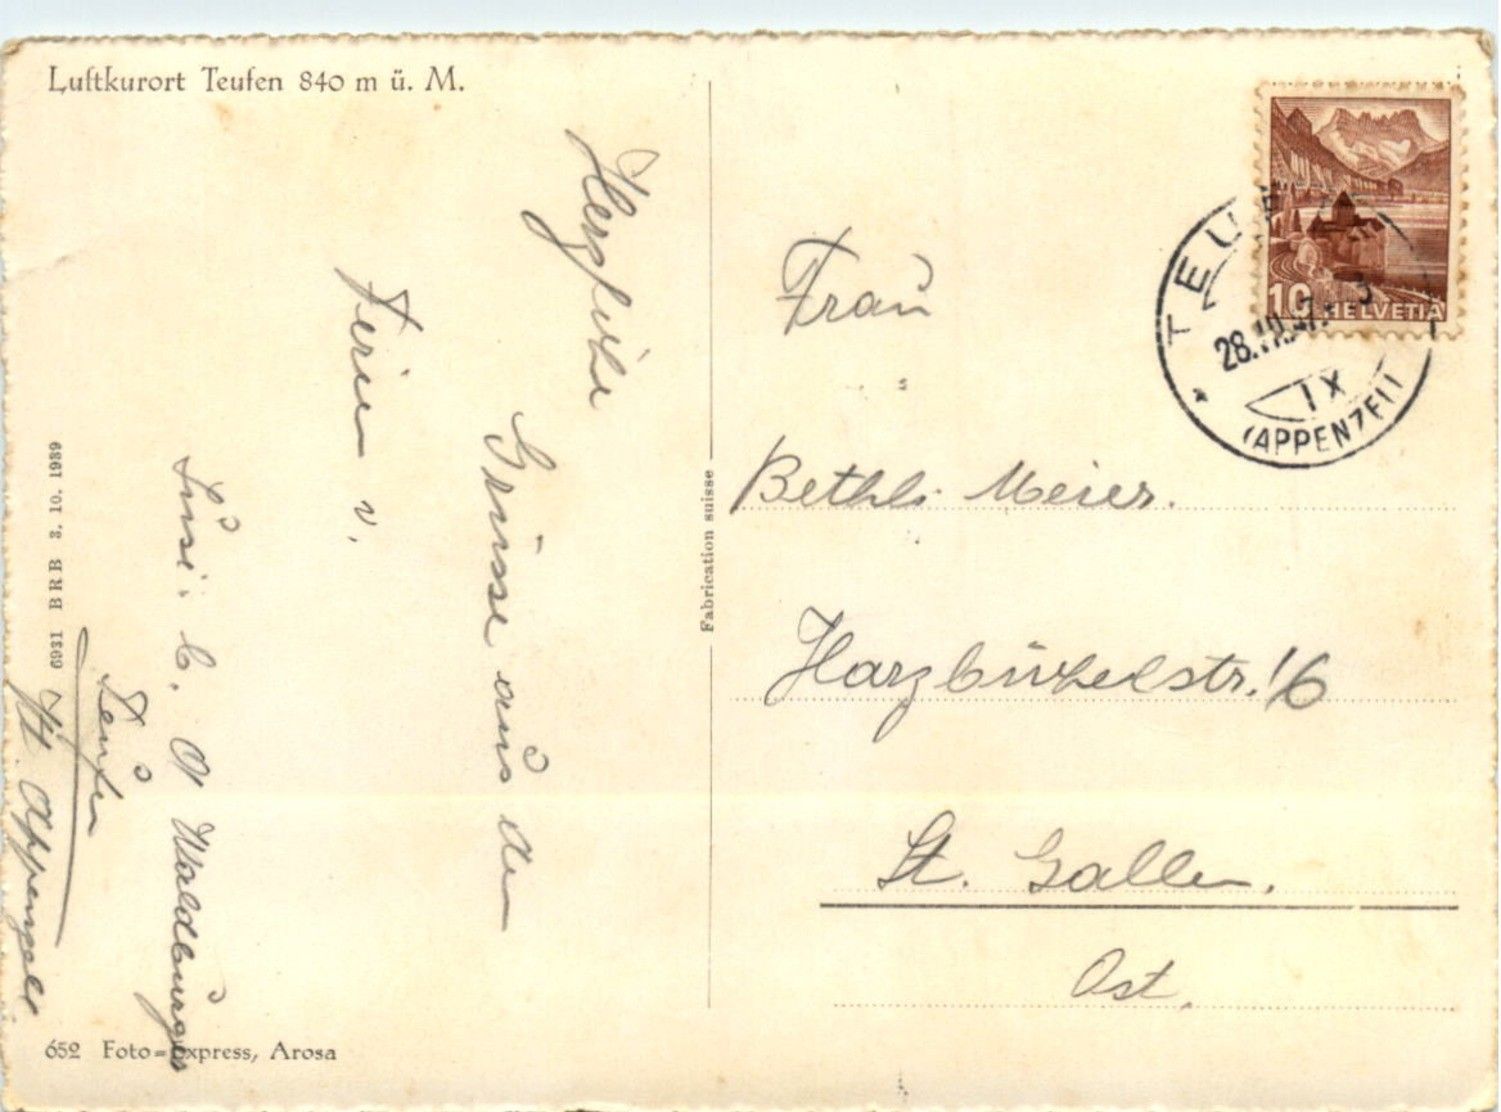 Luftkurort Teufen 840 m ü. M.
Herzliche
Grüsse aus den
Ferien v.
Teufen
Kt. Appenzell.
6931 BRB 3. 10. 1939
652 Foto=Express, Arosa
Fabrication suisse
10 HELVETIA
TEUF
28.
IX
(APPENZELL)
Frau
Bethli Meier.
Harzbüchelstr. 16
St. Gallen.
Ost.